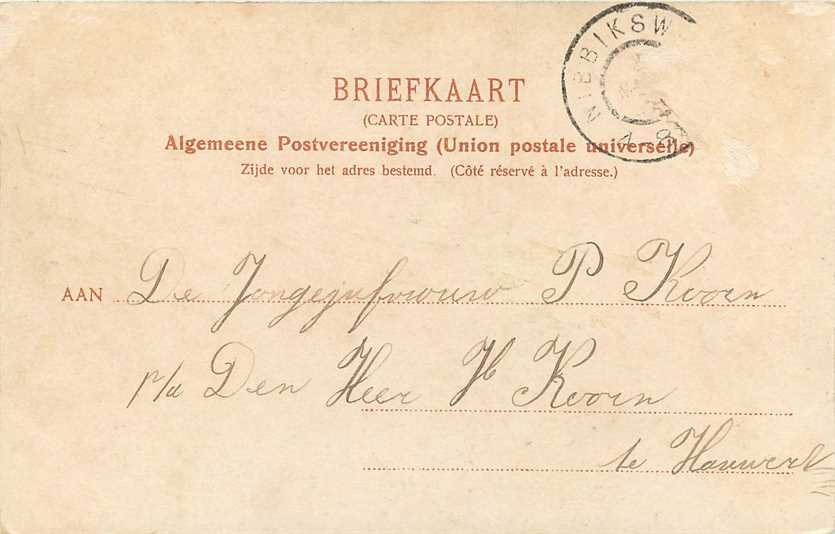 NIBBIKSW
7-8
BRIEFKAART
(CARTE POSTALE)
Algemeene Postvereeniging (Union postale universelle)
Zijde voor het adres bestemd. (Côté réservé à l'adresse.)
AAN De Jongejufvrouw P Koorn
p/a Den Heer Koorn
te Hauwert